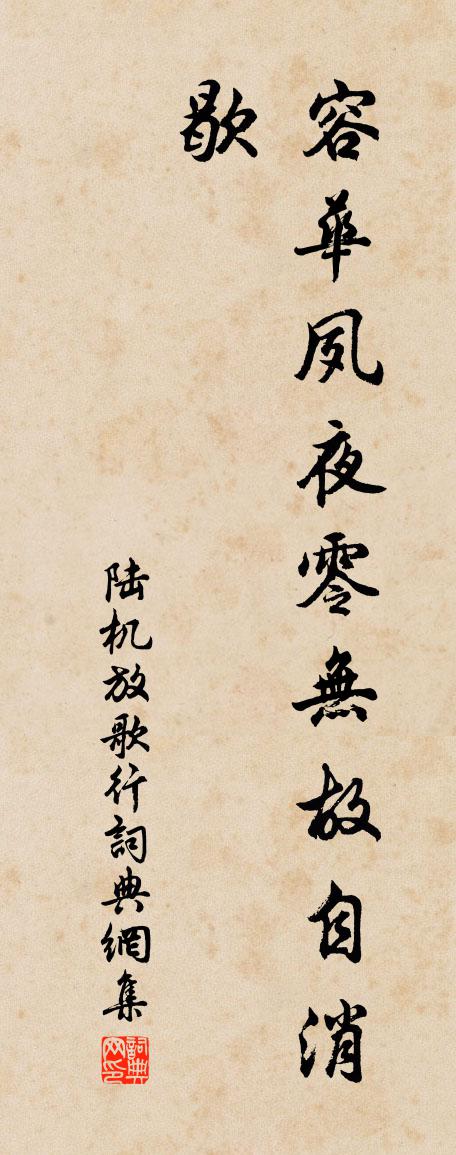 容華夙夜零無故自消
歇
陆机放歌行詞典網集
詞典网印